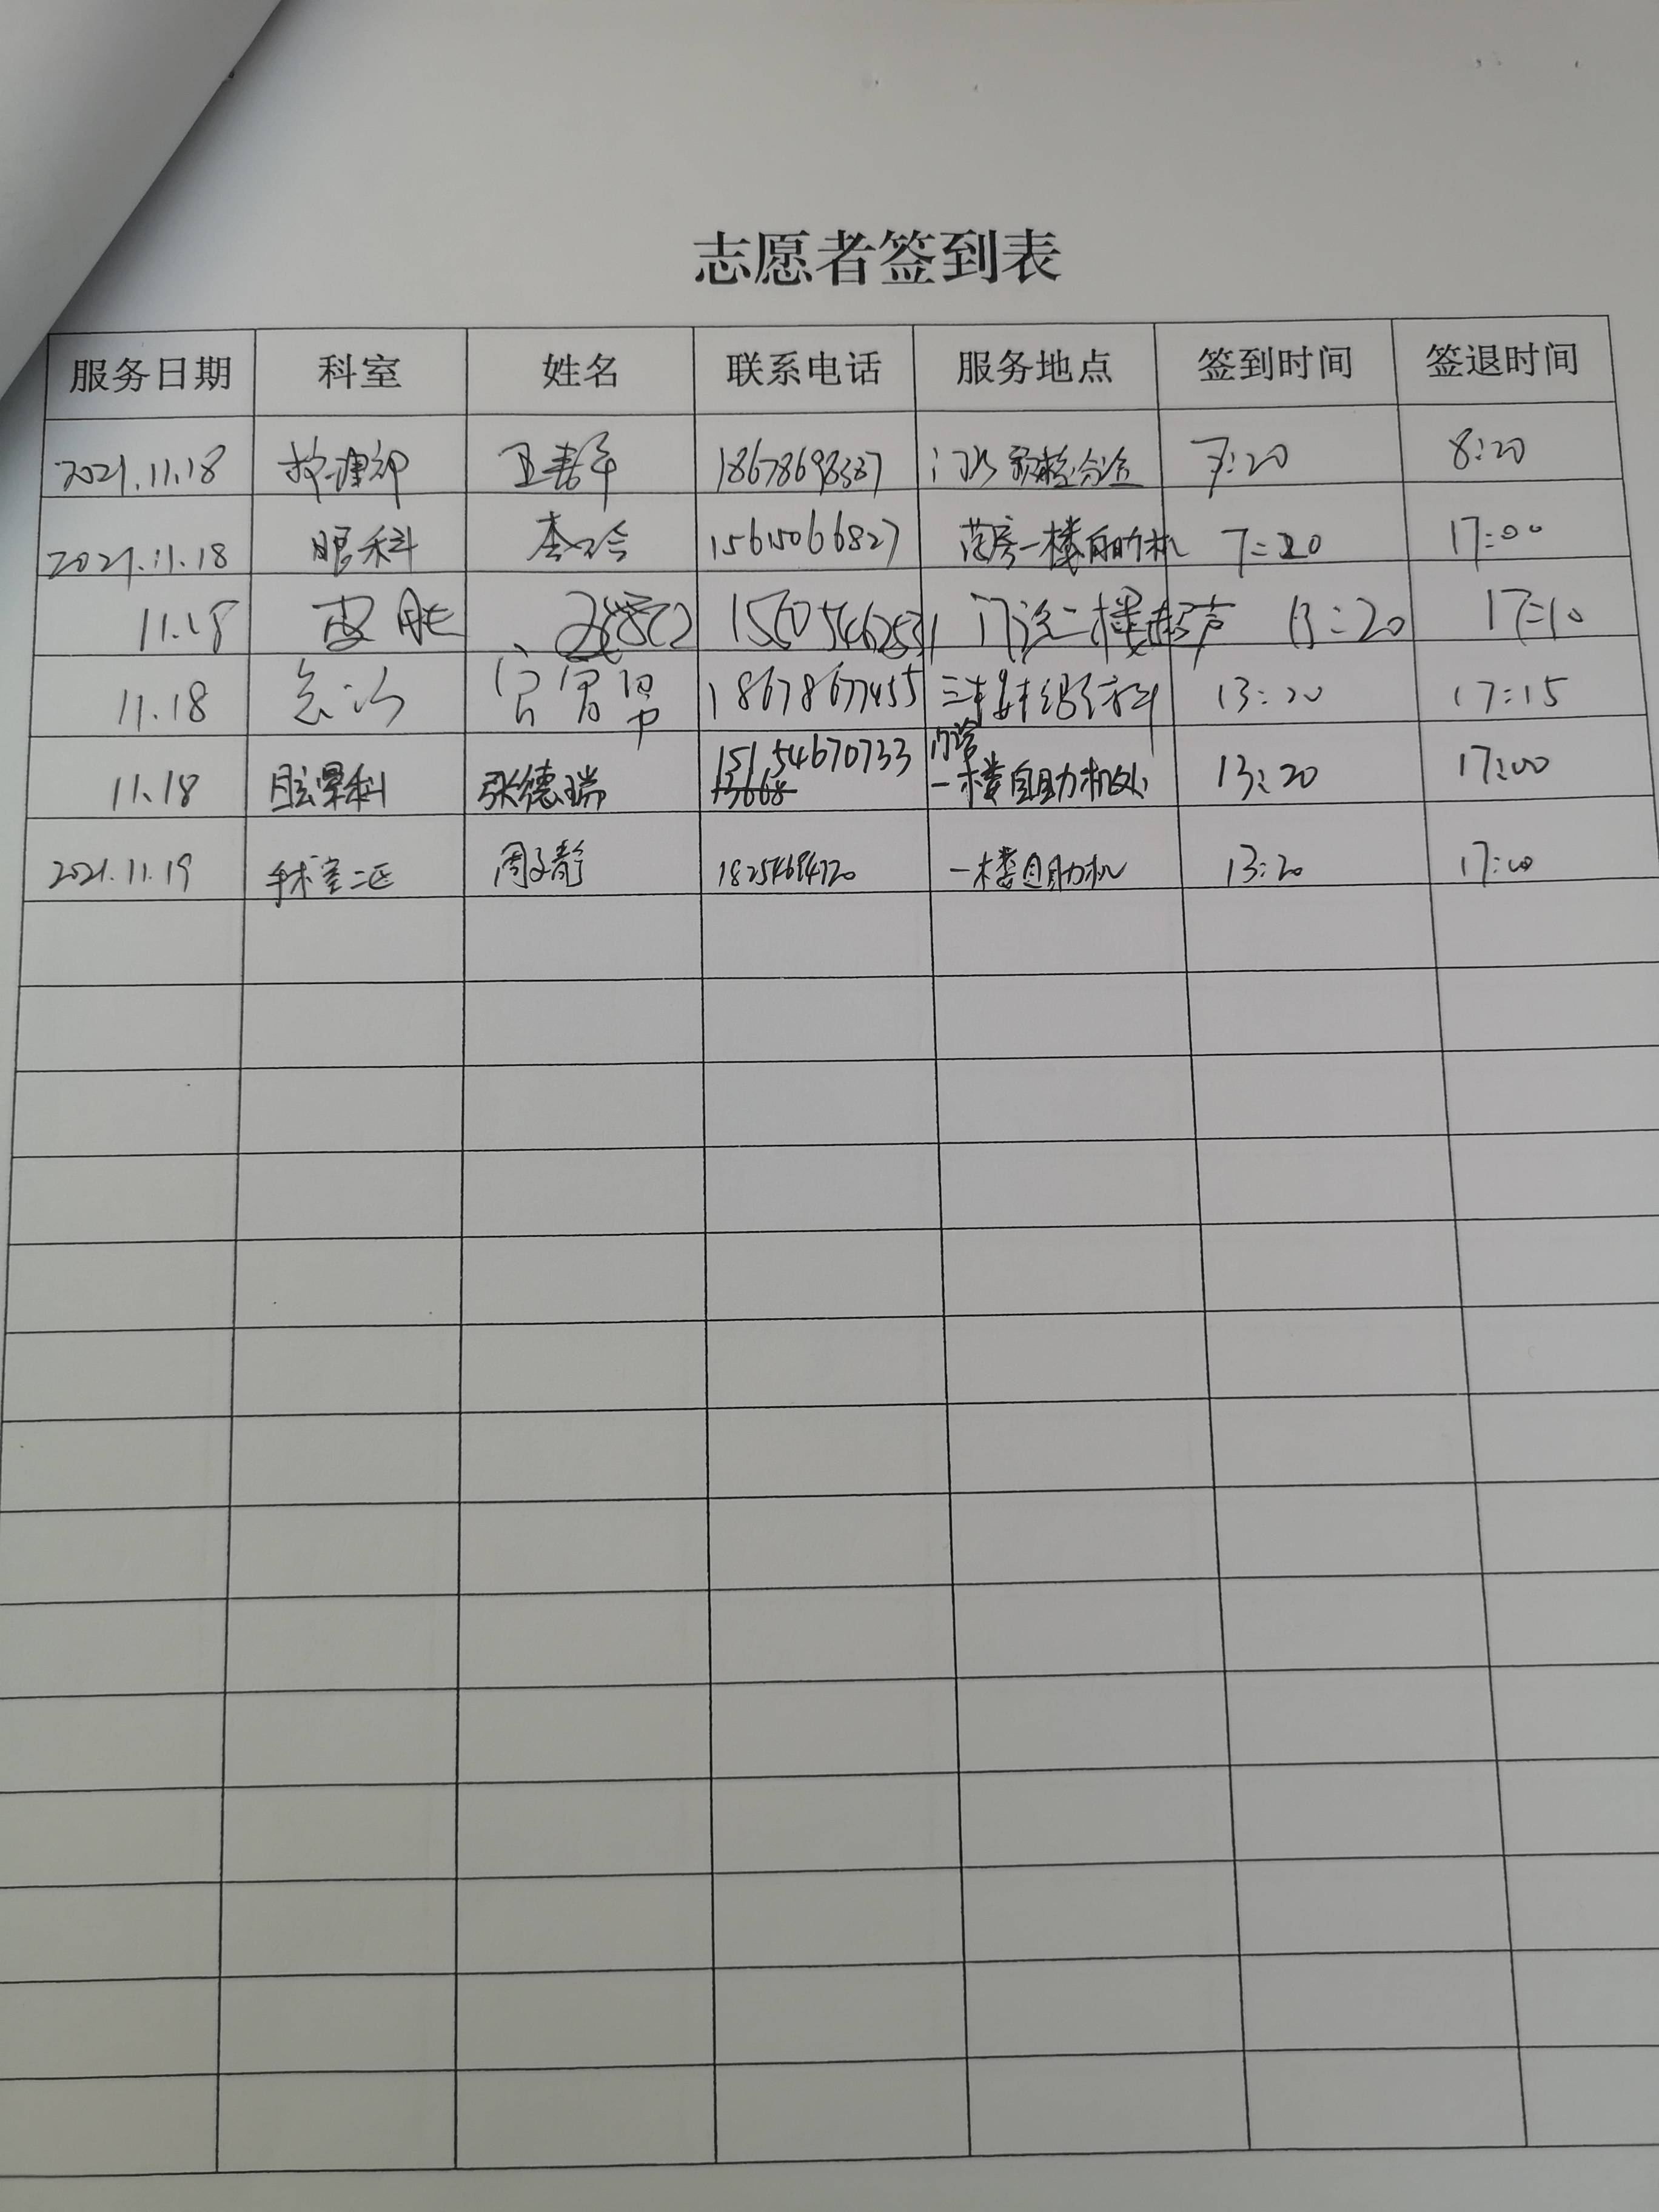 志愿者签到表
服务日期 科室 姓名 联系电话 服务地点 签到时间 签退时间
2021.11.18 护理部 18678698387 7:20 8:20
2021.11.18 眼科 15615066827 药房一楼自助机 7:20 17:00
11.18 门诊二楼超声 13:20 17:10
11.18 急诊 18678677455 13:20 17:15
11.18 眩晕科 张德瑞 15154670733 门诊一楼自助机处 13:20 17:00
2021.11.19 手术室二区 周文静 一楼自助机 13:20 17:00